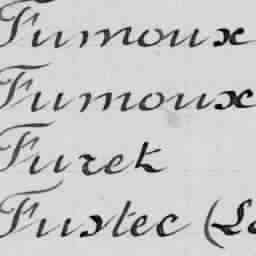 Fumoux
Fumoux
Furet
Fustec (Le